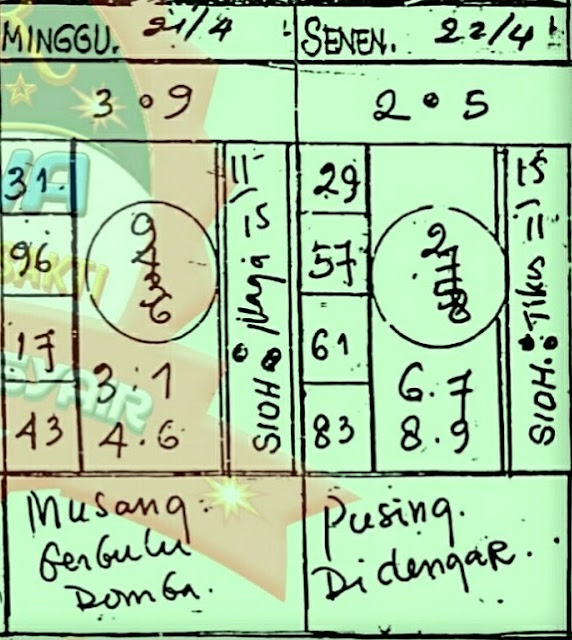 MINGGU. 21/4
3 • 9
31
96
17
43
9
4
3
6
3 : 1
4 . 6
SIOH : Naga =
Musang
Berbulu
Domba.
SENEN. 22/4
2 • 5
29
57
61
83
2
7
5
8
6 . 7
8 . 9
SIOH : Tikus =
Pusing.
Didengar.